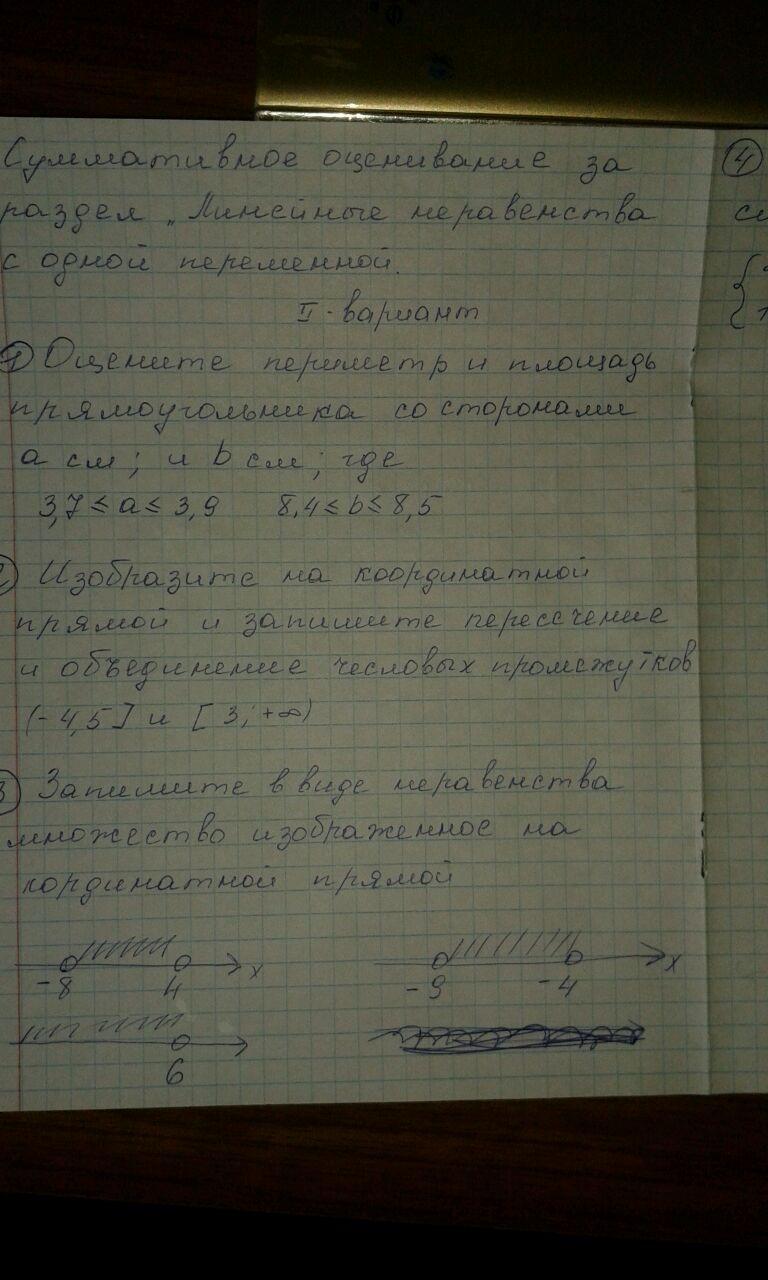 Суммативное оценивание за
раздел „Линейные неравенства
с одной переменной.
II - вариант
① Оцените периметр и площадь
прямоугольника со сторонами
a см; и b см; где
3,7 ≤ a ≤ 3,9 8,4 ≤ b ≤ 8,5
Изобразите на координатной
прямой и запишите пересечение
и объединение чесловых промежутков
(- 4,5] и [3; +∞)
3 Запишите в виде неравенства
множество изображенное на
кординатной прямой
-8 4 x
-9 -4 x
6
④